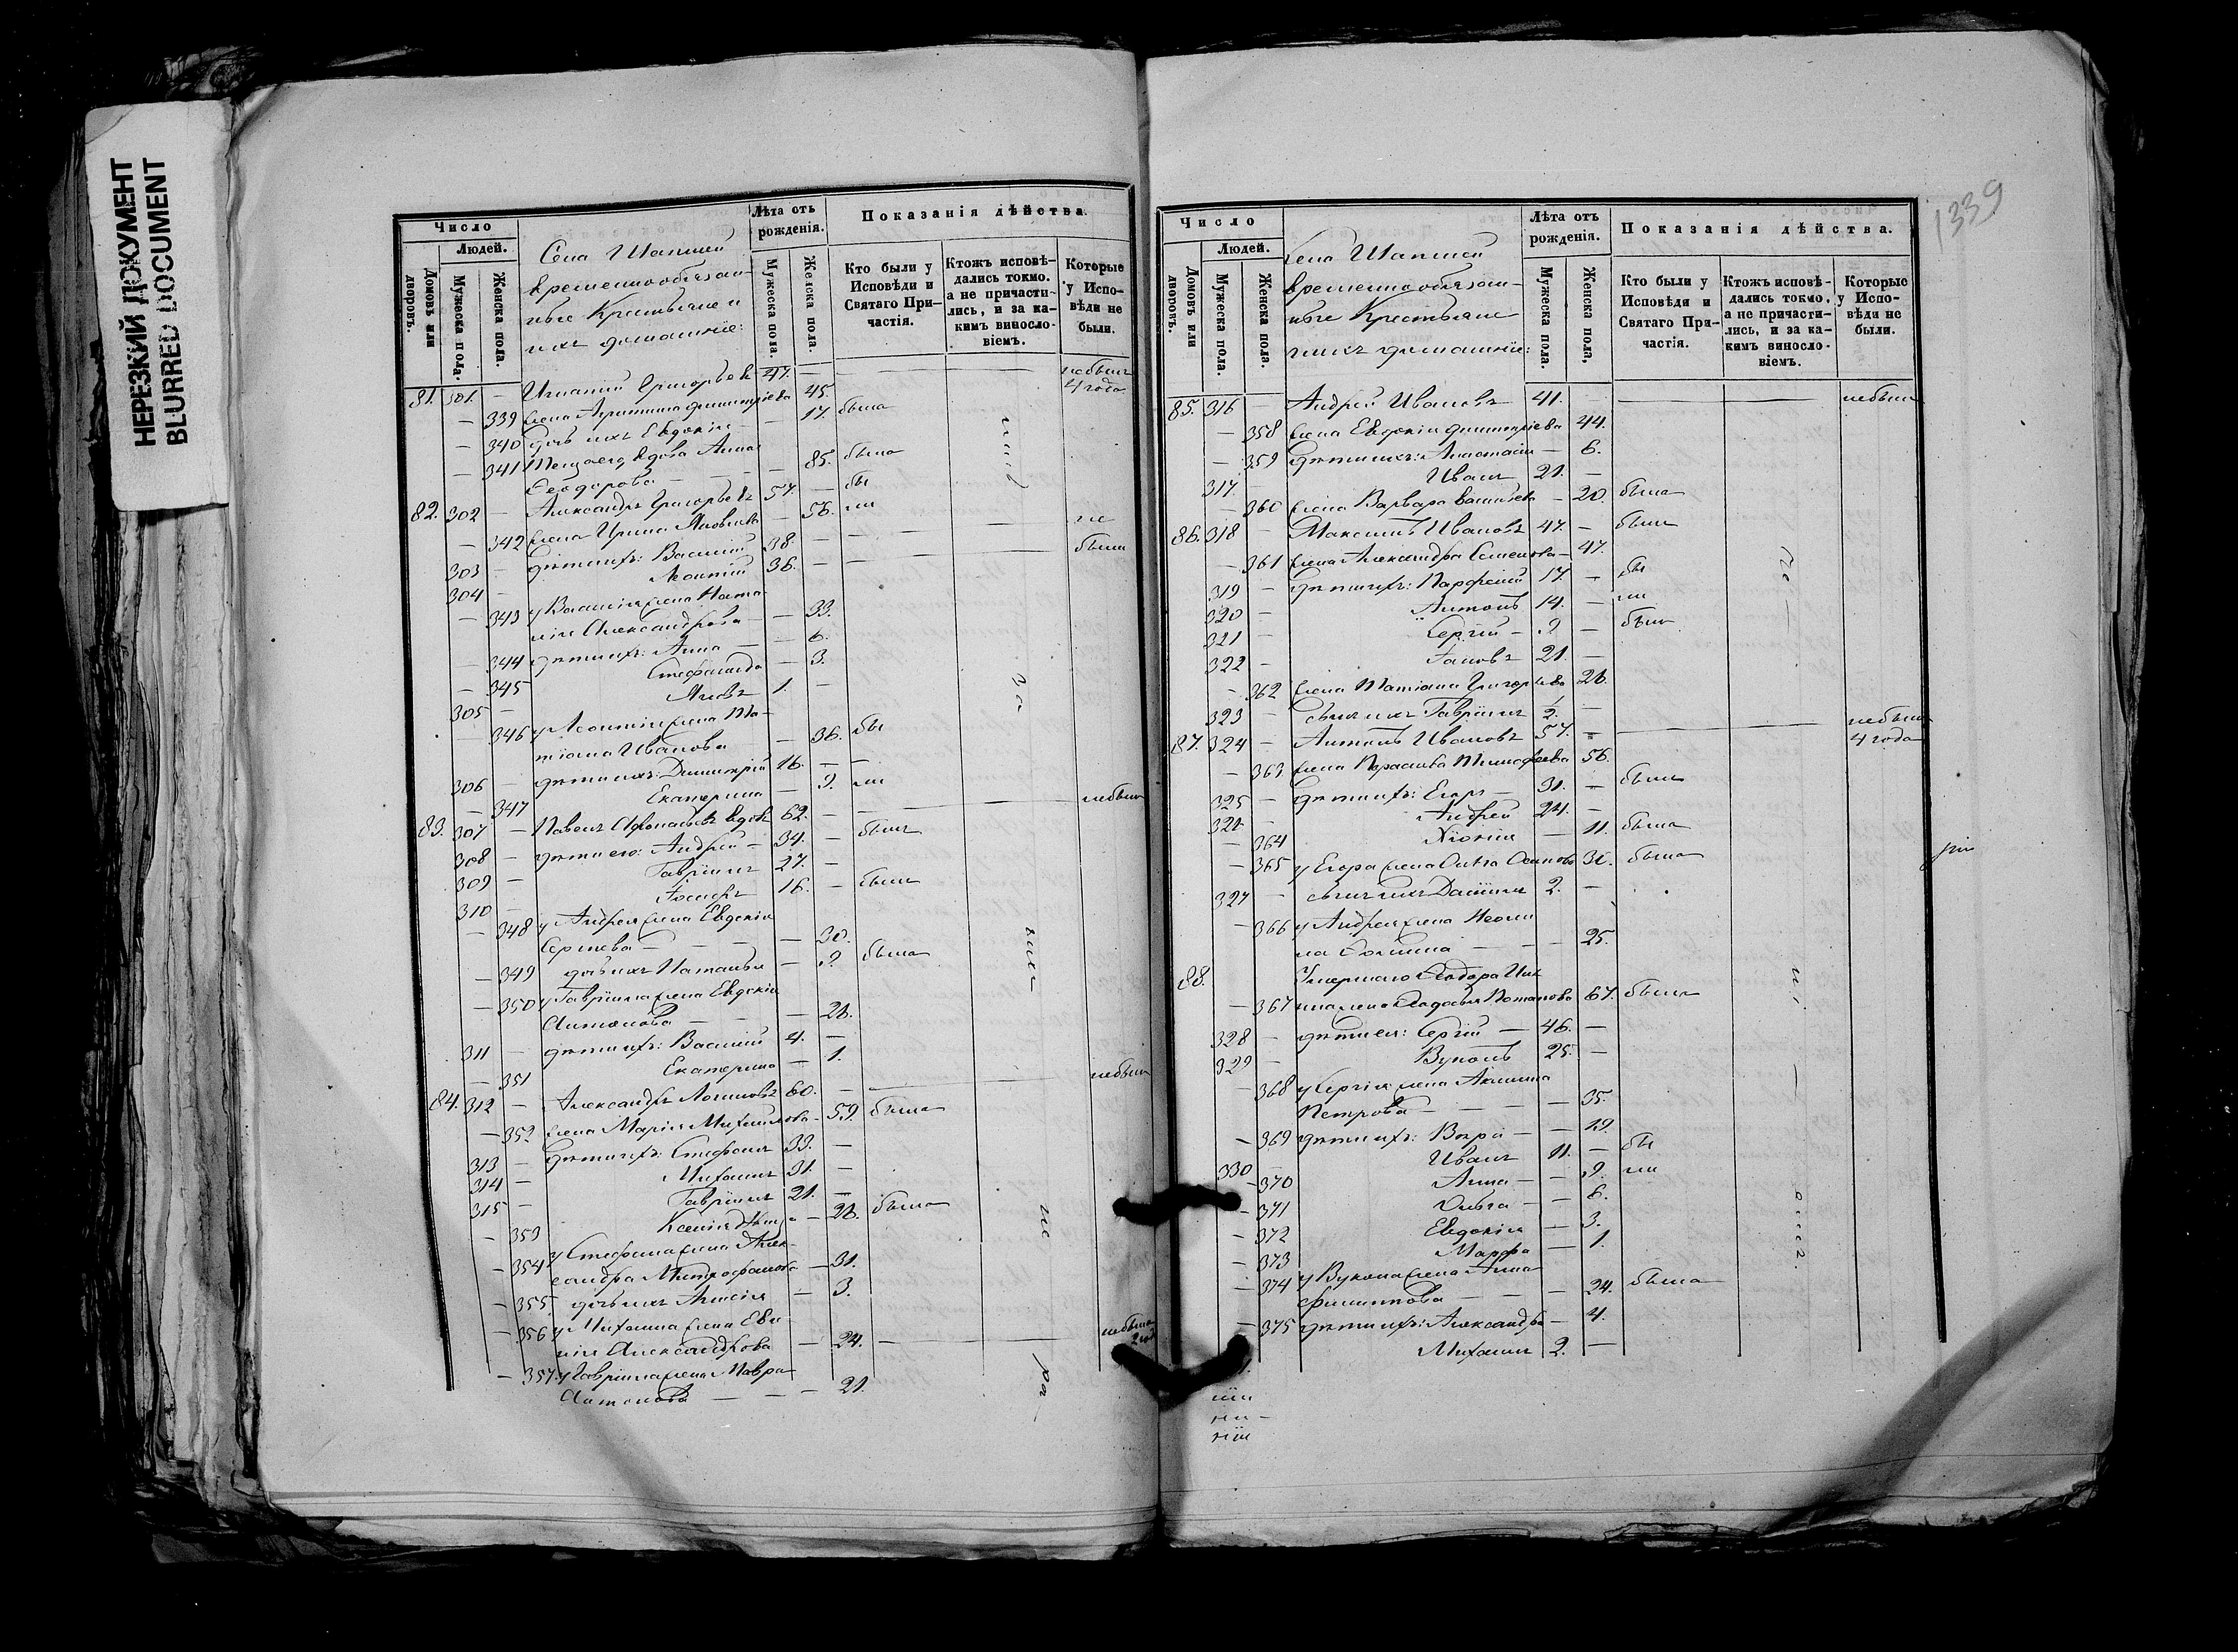 НЕРЕЗКИЙ ДОКУМЕНТ
BLURRED DOCUMENT
Число
Людей.
Домовъ или дворовъ.
Мужеска пола.
Женска пола.
Села
временнообязан-
ные Крестьяне и
ихъ домашніе:
Лѣта отъ рожденія.
Мужеска пола.
Женска пола.
Показанія дѣйства.
Кто были у Исповѣди и Святаго При-частія.
Ктожъ исповѣ-дались токмо, а не причасти-лись, и за ка-кимъ винosло-віемъ.
Которые у Испо-вѣди не были.
81. 301. — Игнатій Григорьевъ 47. — небылъ
4 года
— 339 жена Агрипина Димитріева 45.
— 340 дочь ихъ Евдокія — — 17. была
— 341 вдова Анна
Ѳеодорова — — — 85. была
82. 302 — Александръ Григорьевъ 57. — бы
— 342 жена Ирина Яковлева — 56. ли
303 — дѣти ихъ: Василій 38. — не
304 — Леонтій 36. — были
— 343 у Василія жена Ната-
лія Александрова — — 33.
— 344 дѣти ихъ: Анна — — 6.
— 345 Стефанида — 3.
305 — Яковъ 1. —
— 346 у Леонтія жена Та-
тіана Иванова — 36. бы
306 — дѣти ихъ: Димитрій 16. — —
— 347 Екатерина — 9. ли
83. 307 — Павелъ Аѳанасьевъ вдовъ 62. — небылъ
308 — дѣти его: Андрей — 34. — былъ
309 — Гавріилъ 27. —
310 — Іосифъ 16. — былъ
— 348 у Андрея жена Евдокія
Сергіева — — — 30.
— 349 дочь ихъ Наталья — 9. была
— 350 у Гавріила жена Евдокія
Антонова — — — 28.
311 — дѣти ихъ: Василій 4. —
— 351 Екатерина — 1.
84. 312 — Александръ Логиновъ 60. — небылъ
— 352 жена Марія Михайлова — 59. была
313 — дѣти ихъ: Стефанъ 33. —
314 — Михаилъ 31. —
315 — Гавріилъ 21. —
— 353 Ксенія — 28. была
— 354 у Стефана жена Алек-
сандра Митрофанова — 31.
— 355 дочь ихъ — 3.
— 356 у Михаила жена Евге-
нія Александрова — 24. — небыла
2 года
— 357. у Гавріила жена Мавра
Антонова — — — 21.
1339
Число
Людей.
Домовъ или дворовъ.
Мужеска пола.
Женска пола.
Села
временнообязан-
ные Крестьяне
и ихъ домашніе:
Лѣта отъ рожденія.
Мужеска пола.
Женска пола,
Показанія дѣйства.
Кто были у Исповѣди и Святаго При-частія.
Ктожъ исповѣ-дались токмо, а не причасти-лись, и за ка-кимъ винosло-віемъ.
Которые у Испо-вѣди не были.
85. 316 — Андрей Ивановъ 41. — небылъ
— 358 жена Евдокія Димитріева 44.
— 359 дѣти ихъ: Анастасія — 6.
317 Иванъ 21. —
— 360 жена Варвара Васильева — 20. была
86. 318 — Максимъ Ивановъ 47. — былъ
— 361 жена Александра Семенова — 47.
319 — дѣти ихъ: Парѳеній 17. — бы
320 — Антонъ 14. — ли
321 — Сергій — 9 — былъ
322 — 21. —
— 362 жена Татіана Григорьева 28.
323 — сынъ ихъ Гавріилъ ½. —
87. 324 — Антонъ Ивановъ 57. — небылъ
4 года
— 363. жена Параскева Тимофеева 56.
325 — дѣти ихъ: Егоръ — 31. — былъ
326 — Андрей 24. —
— 364 Хіонія — 11. была
— 365 у Егора жена Ольга Осипова 30. была
327 — сынъ ихъ Даніилъ 2. —
— 366 у Андрея жена Неони-
ла Ѳомина — — — 25.
88. Умершаго Ѳеодора
— 367 жена Ѳедосья Потапова 67. была
328 — дѣти ея: Сергій — 46. —
329 — Вуколъ 25. —
— 368 у Сергія жена Акилина
Петрова — — — 35.
— 369 дѣти ихъ: Вѣра — — 19.
330 — Иванъ 11. — бы
— 370 Анна — — 9. ли
— 371 Ольга — — 6.
— 372 Евдокія — 3.
— 373 Марѳа — 1.
— 374 у Вукола жена Анна
Филиппова — — — 24. была
— 375 дѣти ихъ: Александра — 4.
Михаилъ 2. —